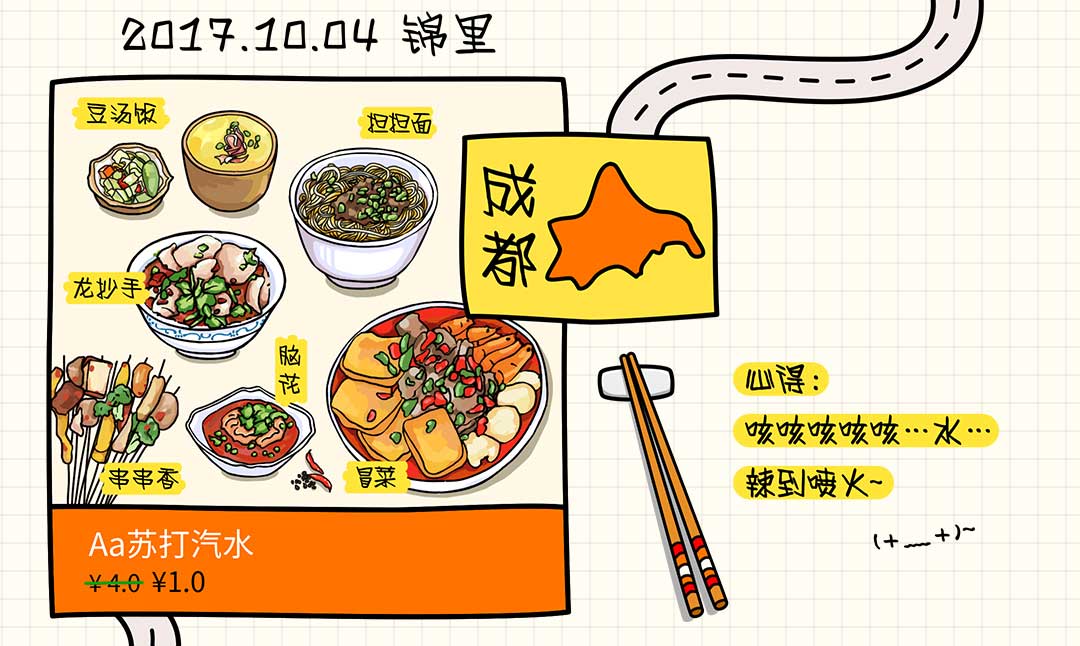 2017.10.04 锦里
豆汤饭
担担面
成都
龙抄手
脑花
串串香
冒菜
Aa苏打汽水
¥4.0 ¥1.0
心得：
咳咳咳咳咳…水…
辣到喷火~
(+﹏+)~